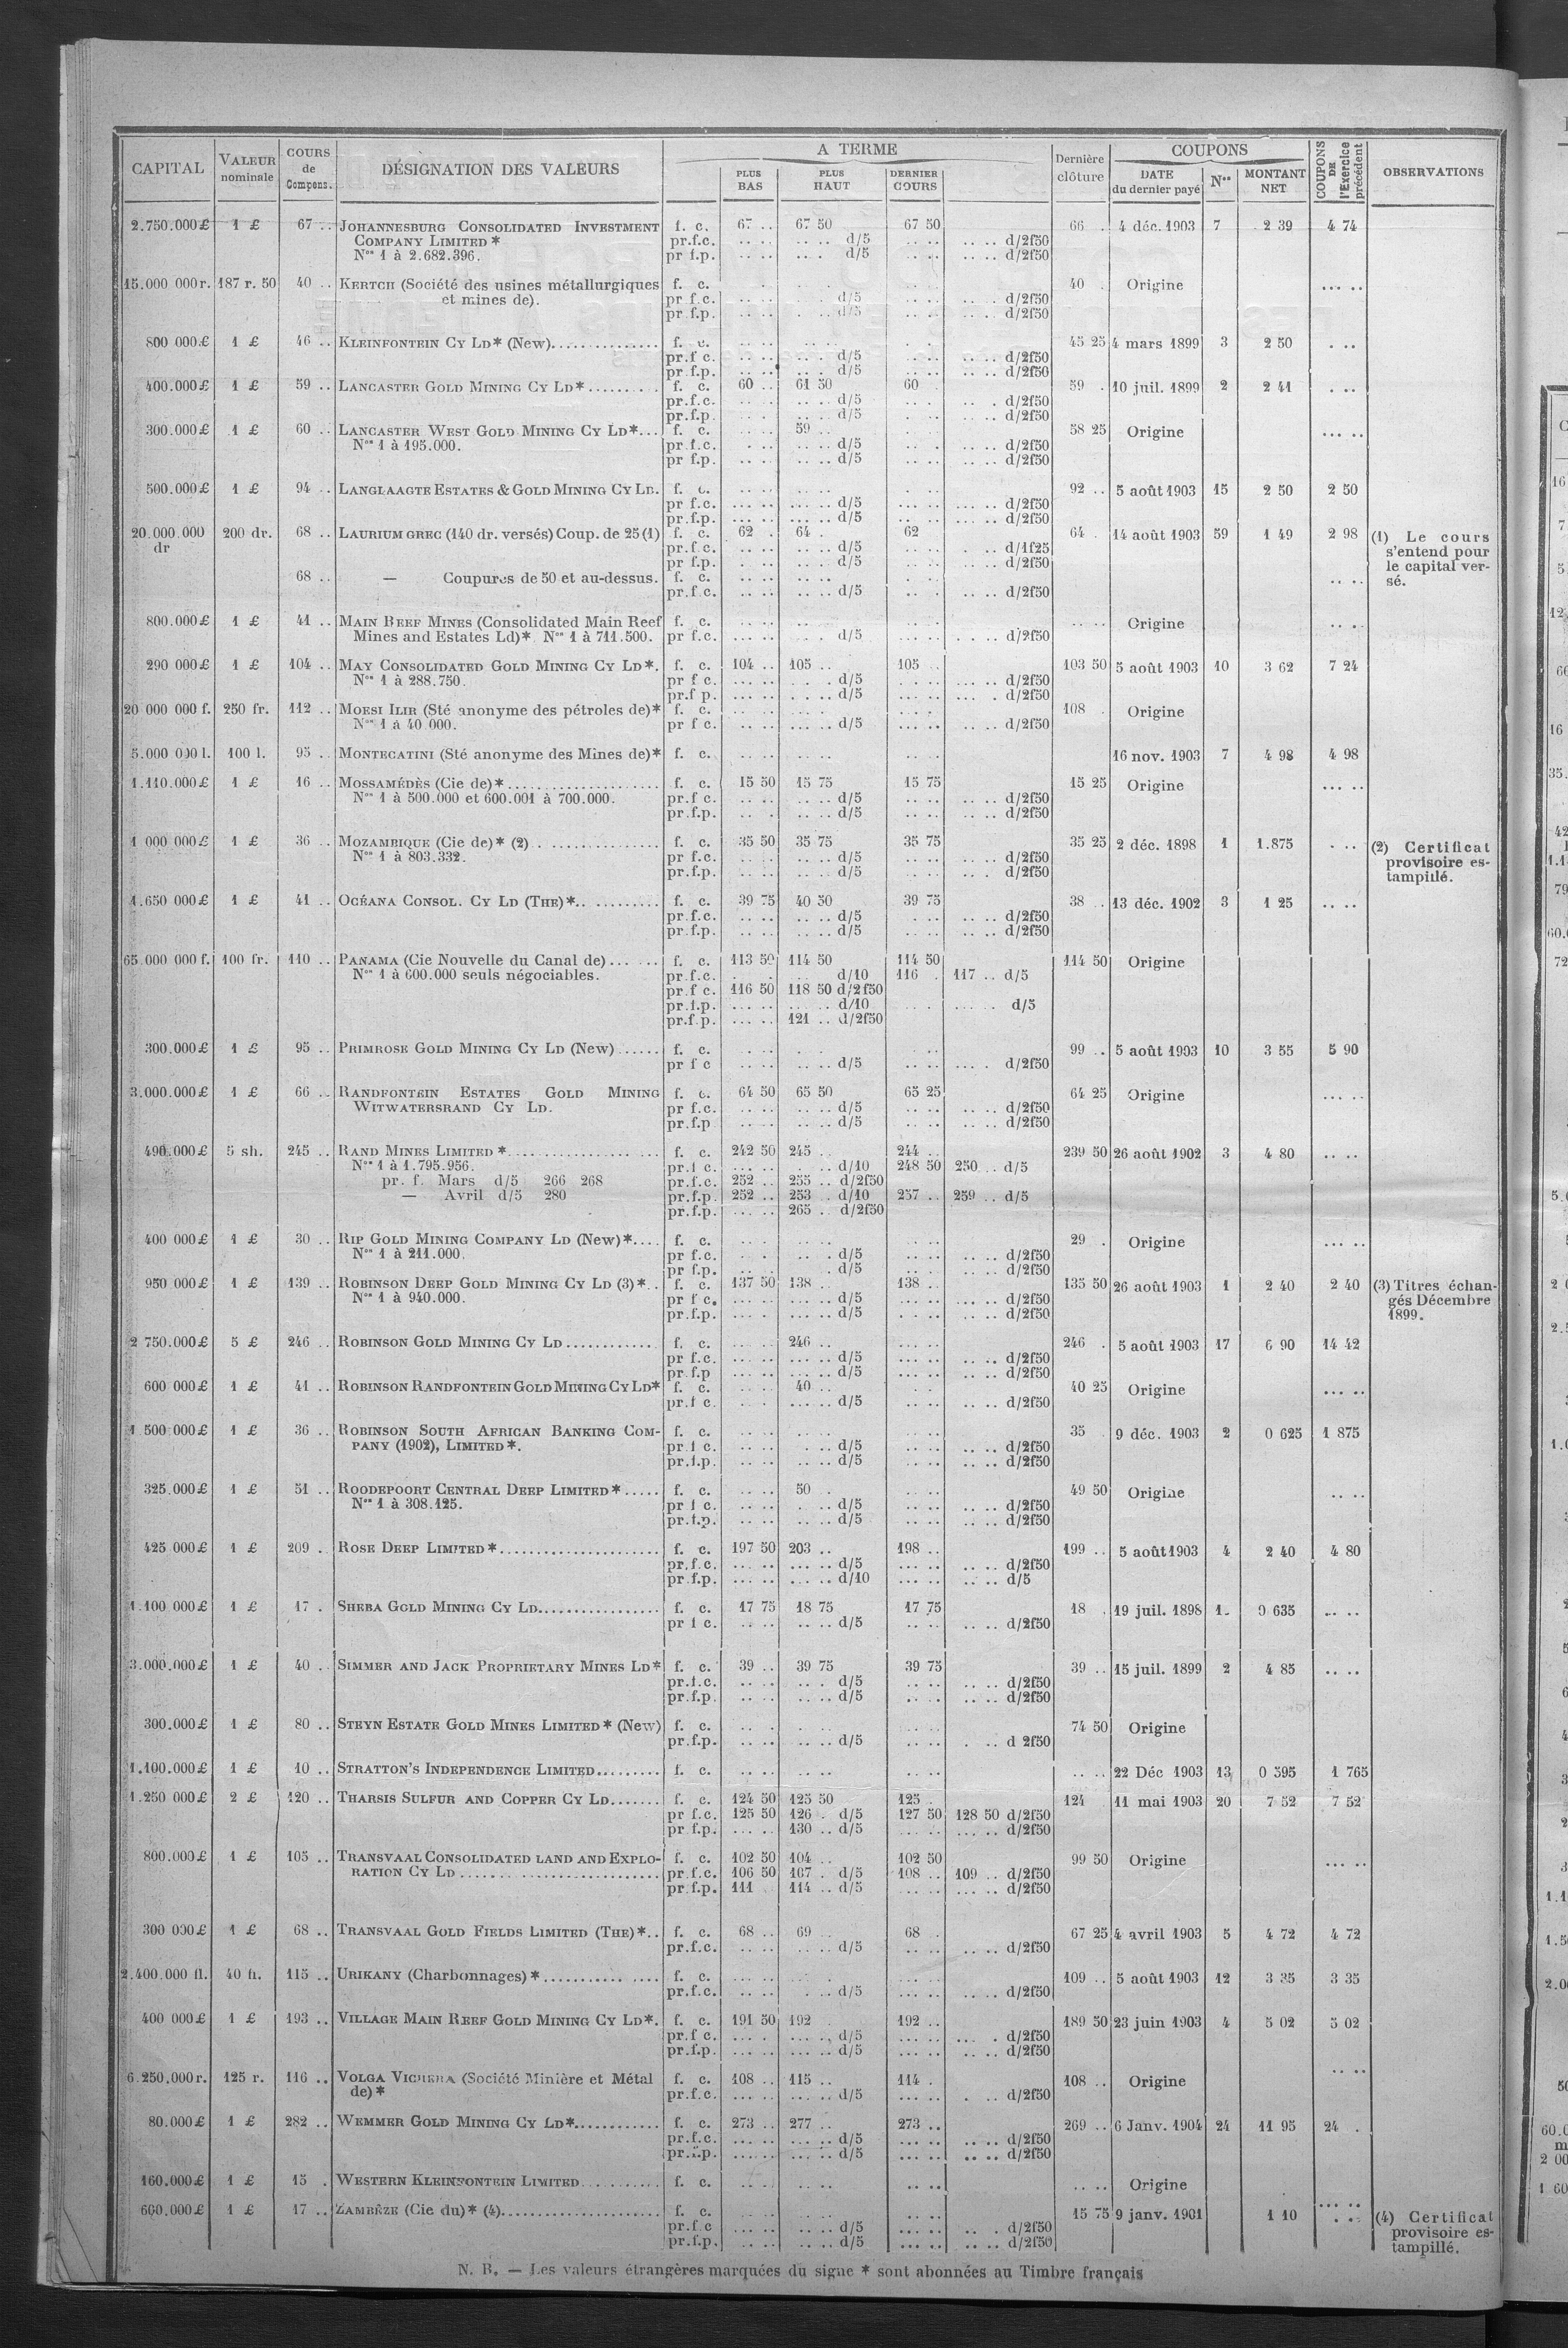 CAPITAL | VALEUR nominale | COURS de Compens. | DÉSIGNATION DES VALEURS | A TERME | PLUS BAS | PLUS HAUT | DERNIER COURS | Dernière clôture | COUPONS | DATE du dernier payé | Nos | MONTANT NET | COUPONS DE l'Exercice précédent | OBSERVATIONS
2.750.000£ 1 £ 67 .. JOHANNESBURG CONSOLIDATED INVESTMENT f. c. 67 .. 67 50 67 50 66 . 4 déc. 1903 7 2 39 4 74
COMPANY LIMITED * pr.f.c. .. .. .. .. d/5 .. .. .. .. d/2f50
Nos 1 à 2.682.396. pr f.p. .. .. .. . d/5 .. .. .. .. d/2f50
15.000 000r. 187 r. 50 40 .. KERTCH (Société des usines métallurgiques f. c. 40 . Origine ... ..
et mines de). pr f.c. .. .. d/5 .. .. d/2f50
pr f.p. .. .. d/5 .. .. d/2f50
800 000£ 1 £ 46 .. KLEINFONTEIN CY LD* (New).............. f. c. 45 25 4 mars 1899 3 2 50 . ..
pr.f c. .. .. d/5 .. .. d/2f50
pr.f.p. .. .. d/5 .. .. d/2f50
400.000£ 1 £ 59 .. LANCASTER GOLD MINING CY LD*......... f. c. 60 .. 61 50 60 . 59 . 10 juil. 1899 2 2 41 . ..
pr.f.c. .. .. d/5 .. . d/2f50
pr.f.p. .. .. d/5 .. .. d/2f50
300.000£ 1 £ 60 .. LANCASTER WEST GOLD MINING CY LD*... f. c. 59 .. 58 25 Origine ... ..
Nos 1 à 195.000. pr.f.c. .. .. d/5 .. .. d/2f50
pr f.p. .. .. d/5 .. .. d/2f50
500.000£ 1 £ 94 .. LANGLAAGTE ESTATES & GOLD MINING CY LD. f. c. 92 .. 5 août 1903 15 2 50 2 50
pr f.c. ... .. d/5 ... .. d/2f50
pr.f.p. ... .. d/5 ... .. d/2f50
20.000.000 200 dr. 68 .. LAURIUM GREC (140 dr. versés) Coup. de 25 (1) f. c. 62 . 64 . 62 64 . 14 août 1903 59 1 49 2 98 (1) Le cours
dr pr.f.c. .. .. d/5 . . d/1f25 s'entend pour
pr f.p. .. .. d/5 .. .. d/2f50 le capital ver-
68 .. — Coupures de 50 et au-dessus. f. c. .. .. sé.
pr.f c. .. .. d/5 .. .. d/2f50
800.000£ 1 £ 41 .. MAIN REEF MINES (Consolidated Main Reef f. c. Origine .. ..
Mines and Estates Ld)* Nos 1 à 711.500. pr f.c. ... .. d/5 ... .. d/2f50
290 000£ 1 £ 104 .. MAY CONSOLIDATED GOLD MINING CY LD*. f. c. 104 .. 105 .. 105 .. 103 50 5 août 1903 10 3 62 7 24
Nos 1 à 288.750. pr f c. ... .. d/5 ... .. d/2f50
pr.f p. ... .. d/5 ... . d/2f50
20 000 000 f. 250 fr. 112 .. MOESI ILIR (Sté anonyme des pétroles de)* f. c. 108 . Origine
Nos 1 à 40 000. pr f c. ... .. d/5 ... .. d/2f50
5.000 000 l. 100 l. 95 .. MONTECATINI (Sté anonyme des Mines de)* f. c. 16 nov. 1903 7 4 98 4 98
1.110.000£ 1 £ 16 .. MOSSAMÉDÈS (Cie de)*..................... f. c. 15 50 15 75 15 75 15 25 Origine ... ..
Nos 1 à 500.000 et 600.001 à 700.000. pr.f c. .. .. d/5 .. .. d/2f50
pr.f.p. .. .. d/5 .. .. d/2f50
1 000 000£ 1 £ 36 .. MOZAMBIQUE (Cie de)* (2) ................. f. c. 35 50 35 75 35 75 35 25 2 déc. 1898 1 1.875 . .. (2) Certificat
Nos 1 à 803.332. pr f.c. .. .. d/5 .. .. d/2f50 provisoire es-
pr.f.p. .. .. d/5 .. . d/2f50 tampillé.
1.650 000£ 1 £ 41 .. OCÉANA CONSOL. CY LD (THE)*............ f. c. 39 75 40 50 39 75 38 .. 13 déc. 1902 3 1 25 .. ..
pr.f.c. .. .. d/5 .. .. d/2f50
pr.f.p. .. .. d/5 .. .. d/2f50
65.000 000 f. 100 fr. 110 .. PANAMA (Cie Nouvelle du Canal de)....... f. c. 113 50 114 50 114 50 114 50 Origine
Nos 1 à 600.000 seuls négociables. pr.f.c. d/10 116 . 117 .. d/5
pr.f c. 116 50 118 50 d/2f50
pr.f.p. ... .. d/10 ... .. d/5
pr.f.p. ... .. 121 .. d/2f50
300.000£ 1 £ 95 .. PRIMROSE GOLD MINING CY LD (New)...... f. c. 99 .. 5 août 1903 10 3 55 5 90
pr f c .. .. d/5 .. .. d/2f50
3.000.000£ 1 £ 66 .. RANDFONTEIN ESTATES GOLD MINING f. c. 64 50 65 50 65 25 64 25 Origine ... ..
WITWATERSRAND CY LD. pr f.c. .. .. d/5 .. .. d/2f50
pr.f.p .. .. d/5 .. .. d/2f50
490.000£ 5 sh. 245 .. RAND MINES LIMITED *................... f. c. 242 50 245 .. 244 .. 239 50 26 août 1902 3 4 80 .. ..
Nos 1 à 1.795.956. pr.f c. ... .. d/10 248 50 250 .. d/5
pr. f. Mars d/5 266 268 pr.f.c. 252 .. 255 .. d/2f50
— Avril d/5 280 pr.f.p. 252 .. 253 .. d/10 257 .. 259 .. d/5
pr.f.p. ... .. 265 .. d/2f50
400 000£ 1 £ 30 .. RIP GOLD MINING COMPANY LD (New)*.... f. c. 29 . Origine ... ..
Nos 1 à 211.000. pr f.c. .. .. d/5 .. .. d/2f50
pr f.p. . d/5 .. .. d/2f50
950 000£ 1 £ 139 .. ROBINSON DEEP GOLD MINING CY LD (3)*.. f. c. 137 50 138 .. 138 .. 135 50 26 août 1903 1 2 40 2 40 (3) Titres échan-
Nos 1 à 940.000. pr f c. ... .. d/5 ... .. d/2f50 gés Décembre
pr.f.p. ... .. d/5 .. .. d/2f50 1899.
2 750.000£ 5 £ 246 .. ROBINSON GOLD MINING CY LD............ f. c. 246 .. 246 . 5 août 1903 17 6 90 14 42
pr f.c. ... .. d/5 ... .. d/2f50
pr.f.p ... .. d/5 ... .. d/2f50
600 000£ 1 £ 41 .. ROBINSON RANDFONTEIN GOLD MINING CY LD* f. c. 40 .. 40 25 Origine ... ..
pr.f c. .. .. d/5 .. .. d/2f50
1 500 000£ 1 £ 36 .. ROBINSON SOUTH AFRICAN BANKING COM- f. c. 35 . 9 déc. 1903 2 0 625 1 875
PANY (1902), LIMITED*. pr.f c. .. .. d/5 .. .. d/2f50
pr.f.p. .. .. d/5 .. .. d/2f50
325.000£ 1 £ 51 .. ROODEPOORT CENTRAL DEEP LIMITED*..... f. c. 50 . 49 50 Origine .. ..
Nos 1 à 308.125. pr f c. .. .. d/5 .. .. d/2f50
pr.f.p. .. .. d/5 .. .. d/2f50
425 000£ 1 £ 209 .. ROSE DEEP LIMITED*...................... f. c. 197 50 203 .. 198 .. 199 .. 5 août 1903 4 2 40 4 80
pr.f.c. ... .. d/5 ... .. d/2f50
pr.f.p. ... .. d/10 ... .. d/5
1.100 000£ 1 £ 17 . SHEBA GOLD MINING CY LD................. f. c. 17 75 18 75 17 75 18 . 19 juil. 1898 1. 0 635 .. ..
pr f c. .. .. d/5 .. .. d/2f50
3.000.000£ 1 £ 40 .. SIMMER AND JACK PROPRIETARY MINES LD* f. c. 39 .. 39 75 39 75 39 .. 15 juil. 1899 2 4 85 .. ..
pr.f.c. .. .. d/5 .. .. d/2f50
pr.f.p. .. .. d/5 .. .. d/2f50
300.000£ 1 £ 80 .. STEYN ESTATE GOLD MINES LIMITED* (New) f. c. 74 50 Origine
pr.f.p. .. .. d/5 . .. d 2f50
1.100.000£ 1 £ 10 .. STRATTON'S INDEPENDENCE LIMITED......... f. c. .. .. 22 Déc 1903 13 0 395 1 765
1.250 000£ 2 £ 120 .. THARSIS SULFUR AND COPPER CY LD....... f. c. 124 50 125 50 125 . 124 11 mai 1903 20 7 52 7 52
pr f.c. 125 50 126 . d/5 127 50 128 50 d/2f50
pr f.p. ... .. 130 .. d/5 ... .. d/2f50
800.000£ 1 £ 105 .. TRANSVAAL CONSOLIDATED LAND AND EXPLO- f. c. 102 50 104 .. 102 50 99 50 Origine ... ..
RATION CY LD ............................ pr.f.c. 106 50 107 . d/5 108 .. 109 .. d/2f50
pr.f.p. 111 114 .. d/5 ... .. d/2f50
300 000£ 1 £ 68 .. TRANSVAAL GOLD FIELDS LIMITED (THE)*.. f. c. 68 .. 69 .. 68 .. 67 25 4 avril 1903 5 4 72 4 72
pr.f.c. .. .. d/5 .. .. d/2f50
2.400.000 fl. 40 fl. 115 .. URIKANY (Charbonnages)*................ f. c. 109 .. 5 août 1903 12 3 35 3 35
pr.f.c. ... .. d/5 ... .. d/2f50
400 000£ 1 £ 193 .. VILLAGE MAIN REEF GOLD MINING CY LD*. f. c. 191 50 192 . 192 .. 189 50 23 juin 1903 4 5 02 5 02
pr.f c. ... .. d/5 ... . d/2f50
pr.f.p. ... .. d/5 ... .. d/2f50
6.250.000r. 125 r. 116 .. VOLGA VICHERA (Société Minière et Métal f. c. 108 .. 115 .. 114 . 108 .. Origine .. ..
de)* pr.f.c. ... .. d/5 . .. d/2f50
80.000£ 1 £ 282 .. WEMMER GOLD MINING CY LD*............ f. c. 273 .. 277 .. 273 .. 269 .. 6 Janv. 1904 24 11 95 24 .
pr.f.c. ... .. d/5 ... .. d/2f50
pr.f.p. ... .. d/5 ... .. d/2f50
160.000£ 1 £ 15 . WESTERN KLEINFONTEIN LIMITED.......... f. c. .. .. Origine
600.000£ 1 £ 17 .. ZAMBÈZE (Cie du)* (4)...................... f. c. 15 75 9 janv. 1901 1 10 . .. (4) Certificat
pr.f.c ... .. d/5 ... .. d/2f50 provisoire es-
pr.f.p. .. .. d/5 ... .. d/2f50 tampillé.
N. B. — Les valeurs étrangères marquées du signe * sont abonnées au Timbre français